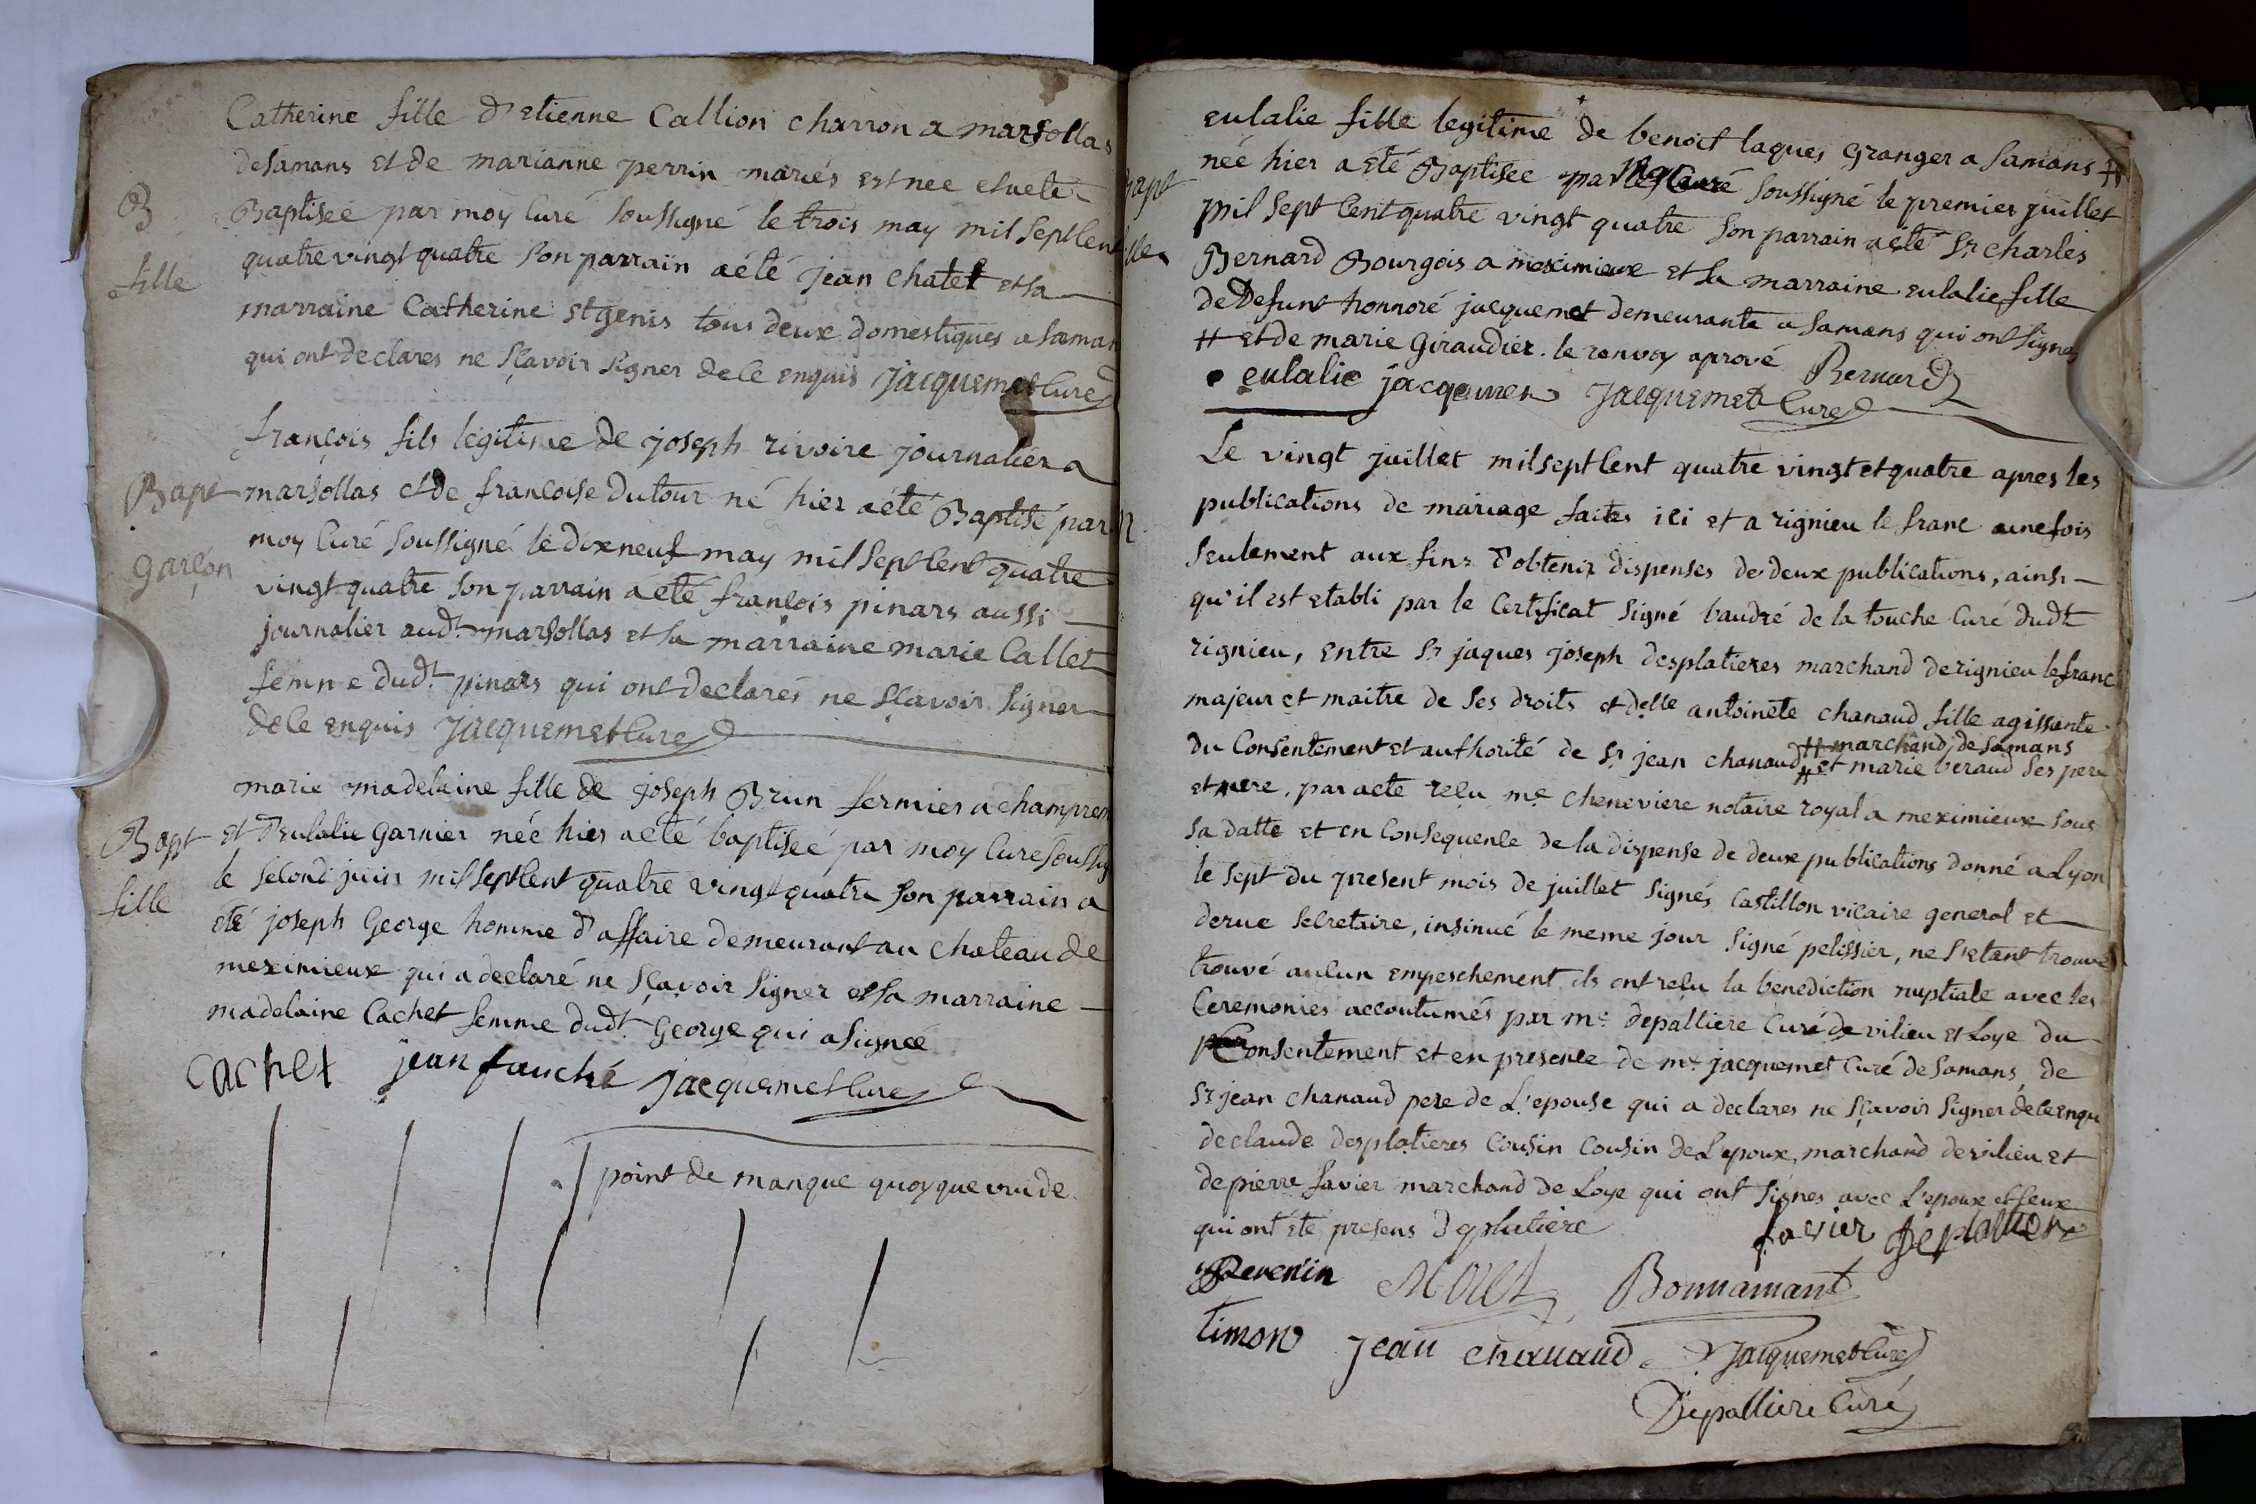 Catherine fille d'etienne Callion charron a marsollas
desamans et de marianne perrin mariés est nee et a eté
B
Baptiseé par moy Curé soussigné le trois may mil sept Cent
quatre vingt quatre son parrain a été jean chatel et sa
fille
marraine Catherine St genis tous deux domestiques a saman
qui ont declares ne sçavoir signer de ce enquis jacquemet Curé
françois fils legitime de joseph rivoire journalier a
Bapt
marsollas et de francoise dutour né hier a été Baptisé par
moy Curé soussigné le dixneuf may mil sept Cent quatre
garçon
vingt quatre son parrain a été françois pinars aussi
journalier aud.t marsollas et sa marraine marie Callet
femme dud.t pinars qui ont declarés ne sçavoir signer
de ce enquis jacquemet Curé
marie madeleine fille de joseph Brun fermier a champrem
Bapt
et d'eulalie garnier neé hier a eté baptiseé par moy Curé soussig
le second juin mil sept Cent quatre vingt quatre son parrain a
fille
eté joseph George homme d'affaire demeurant au chateau de
meximieux qui a declaré ne sçavoir signer et sa marraine
madelaine Cachet femme dud.t George qui a signeé
cachet jean fauché jacquemet Curé
point de manque quoyque vuide
eulalie fille legitime de benoit jaques granger a samans #
neé hier a eté Baptisee par moy Curé soussigné le premier juillet
Bapt
mil sept Cent quatre vingt quatre son parrain a eté Sr charles
Bernard Bourgois a meximieux et sa marraine eulalie fille
de defunt honnoré jacquemet demeurante a samans qui ont signes
# et de marie Giraudier. le renvoy aprové Bernard
eulalie jacquemet jacquemet Curé
Le vingt juillet mil sept Cent quatre vingt et quatre apres les
publications de mariage faites ici et a rignieu le franc une fois
seulement aux fins d'obtenir dispenses de deux publications, ainsi
qu'il est etabli par le Certificat signé baudré de la touche Curé dudt
rignieu, entre Sr jaques joseph desplatieres marchand de rignieu le franc
majeur et maitre de ses droits et delle antoinete chanaud fille agissante
du Consentement et authorité de Sr jean chanaud # marchand, de samans
# et marie beraud ses pere
et mere, par acte reçu me cheneviere notaire royal a meximieux sous
sa datte et en Consequence de la dispense de deux publications donné a Lyon
le sept du present mois de juillet signés Castillon vicaire general et
derue secretaire, insinué le meme jour signé pelissier, ne s'etant trouvé
trouvé aucun empeschement ils ont reçu la benediction nuptiale avec les
Ceremonies accoutumés par me. depalliere Curé de vilieu et Loye du
Consentement et en presence de me jacquemet Curé de samans, de
Sr jean chanaud pere de L'epouse qui a declares ne sçavoir signer de ce enqu
de claude desplatieres Cousin Cousin de L'epoux, marchand de vilieu et
de pierre savier marchand de Loye qui ont signes avec L'epoux et ceux
qui ont eté presens Desplatiere savier
Bonnamant
timon jean chanaud jacquemet Curé
Depalliere Curé